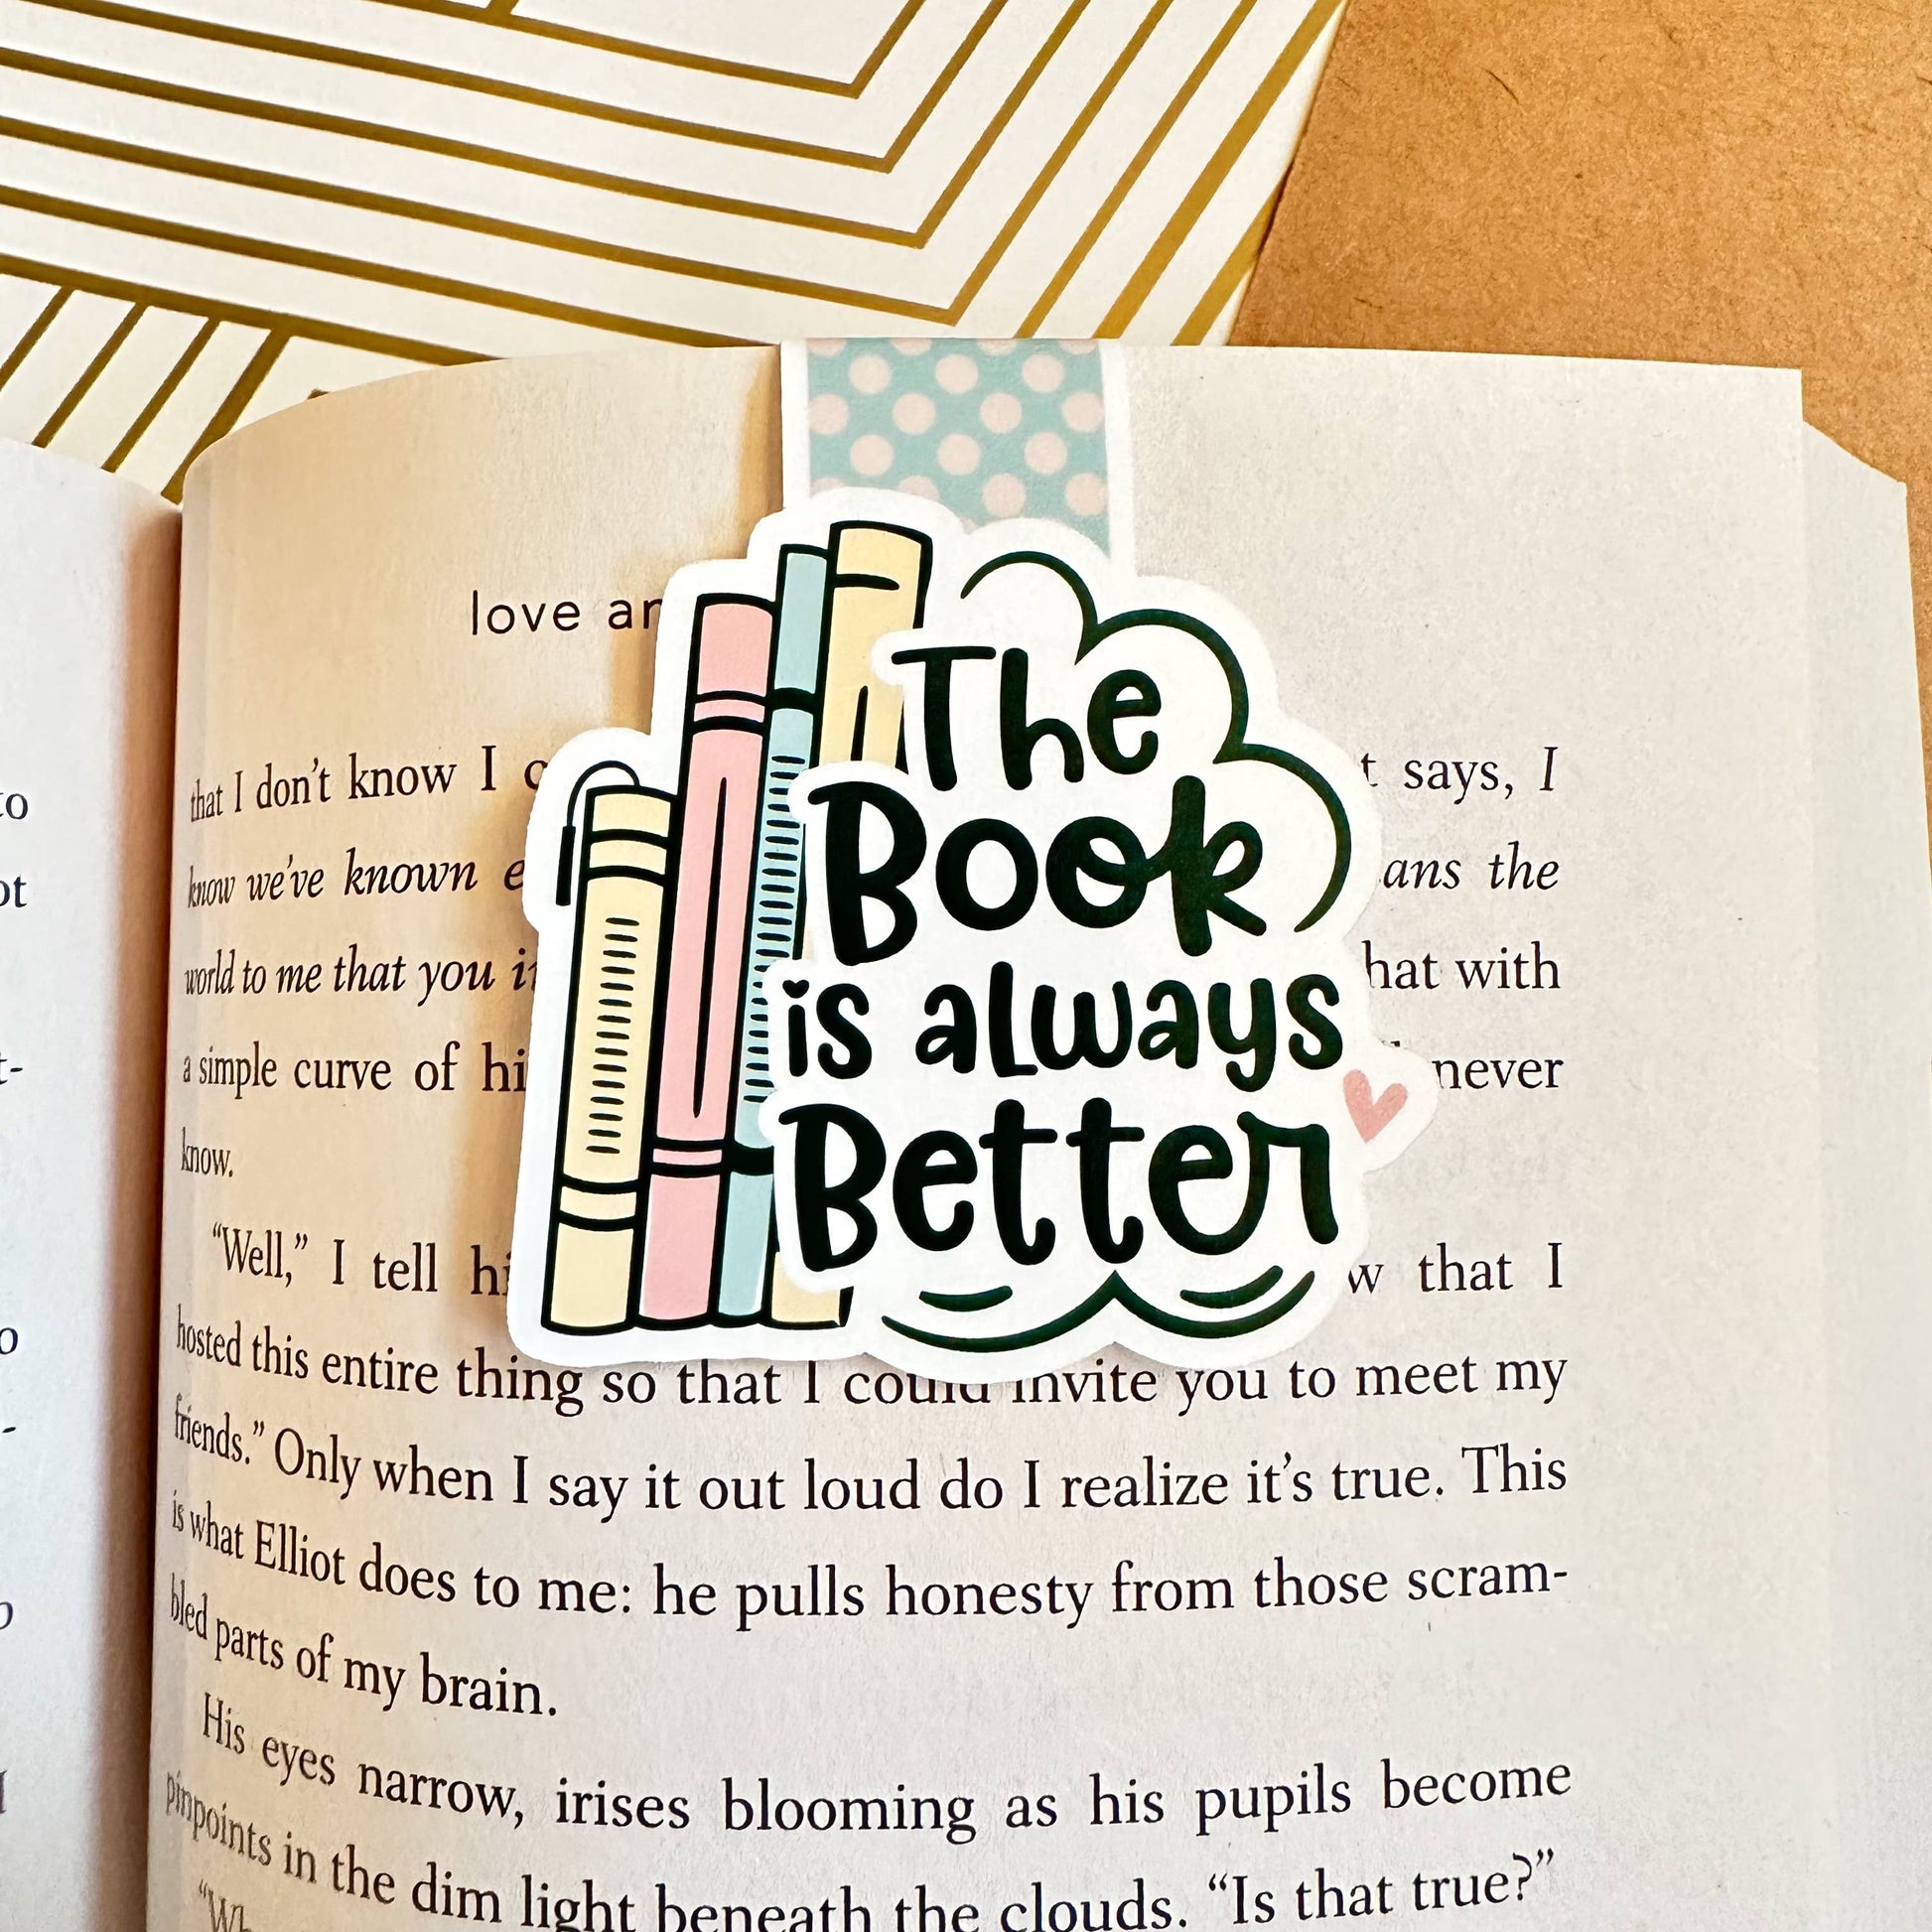 love
The
Book
is always
Better
that I don't know I
says, I
know we've known
the
world to me that you
with
a simple curve of
never
know.
"Well," I tell
that I
hosted this entire thing so that I could invite you to meet my
friends." Only when I say it out loud do I realize it's true. This
is what Elliot does to me: he pulls honesty from those scram-
bled parts of my brain.
His eyes narrow, irises blooming as his pupils become
pinpoints in the dim light beneath the clouds. "Is that true?"